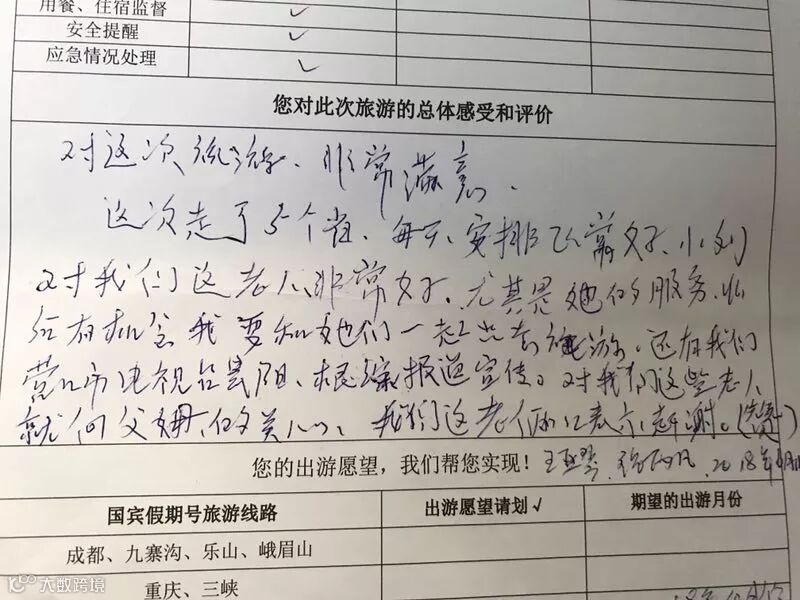 用餐、住宿监督 ✓
安全提醒 ✓
应急情况处理 ✓
您对此次旅游的总体感受和评价
对这次旅游、非常满意、
这次走了5个省、每天、安排非常好、小刘
对我们这老人、非常好、尤其是她的服务、
有机会我要和她们一起去旅游、还有我们
营口市电视台 报道宣传。对我们这些老人
就向父母、的关心、我们这老俩口表示、感谢。
您的出游愿望，我们帮您实现！ 2018年
国宾假期号旅游线路 出游愿望请划√ 期望的出游月份
成都、九寨沟、乐山、峨眉山
重庆、三峡
大数跨境